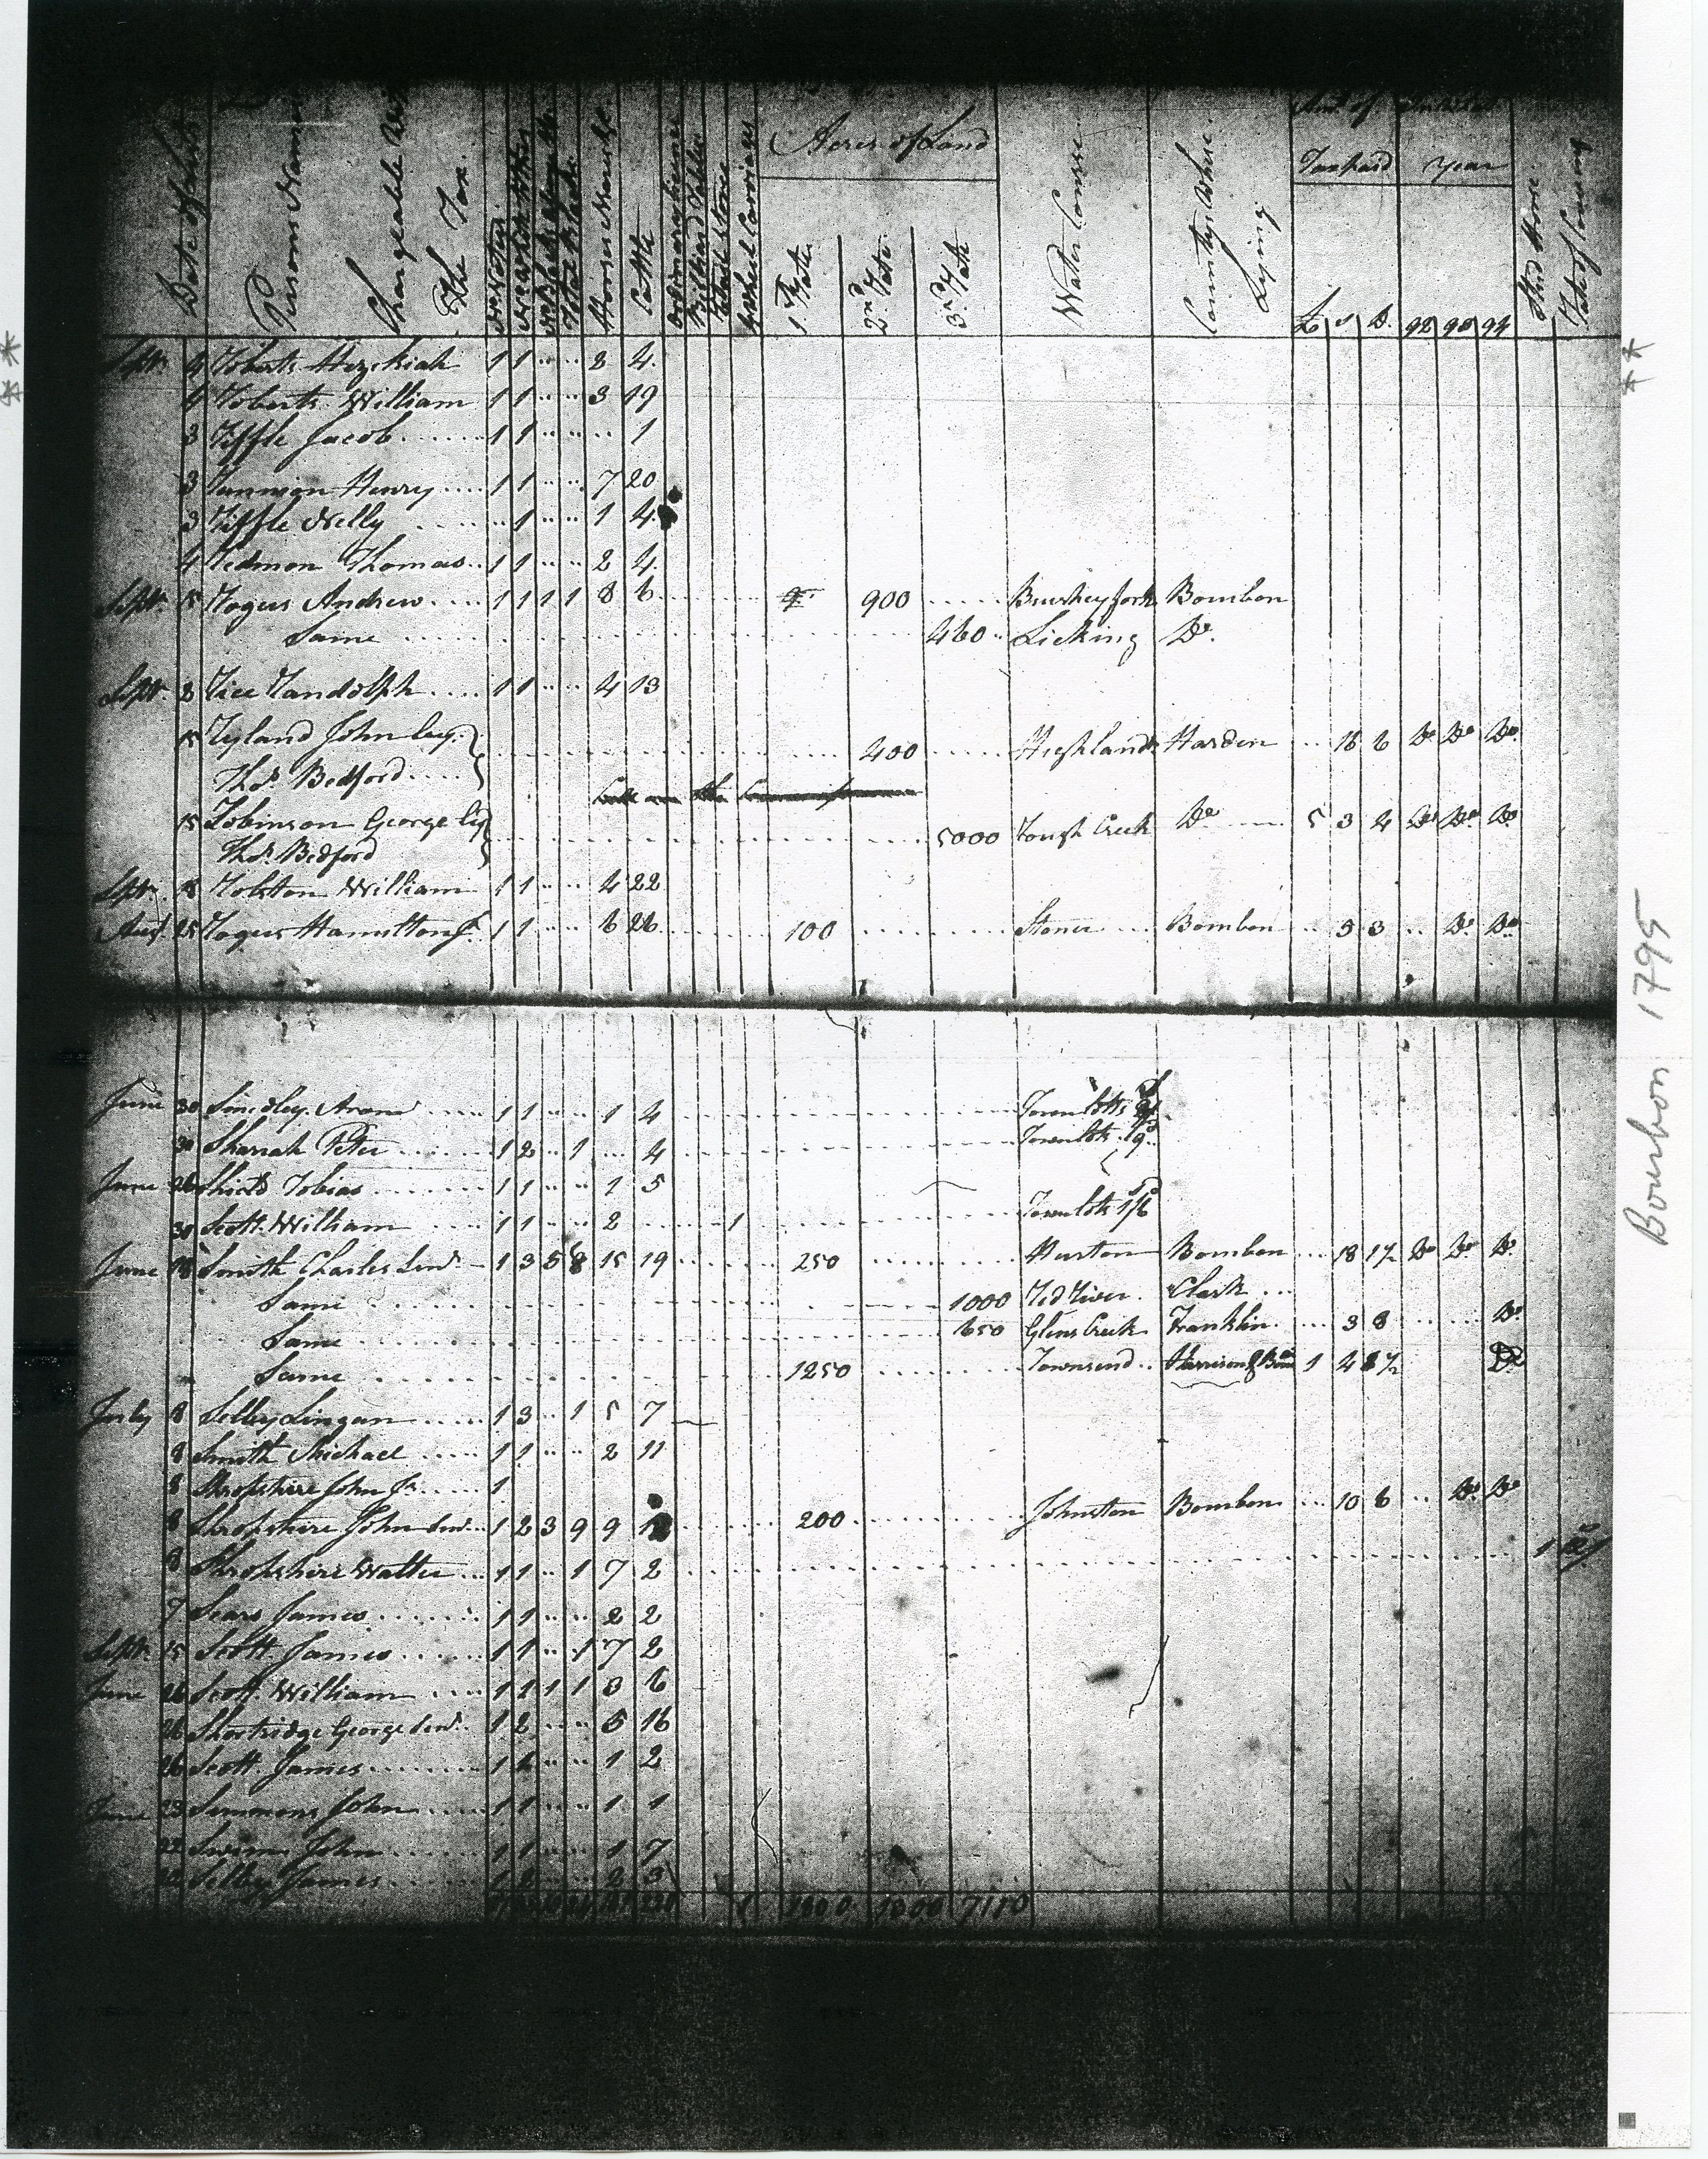 Date of
Persons Names
Chargeable With
The Tax
Horses Mares &c.
Cattle
Ordinary licenses
Billiard Tables
Retail Stores
Wheel Carriages
Acres of Land
1st Rate
2nd Rate
3rd Rate
Water Course
County Where
Lying
Tax paid
year
£ S D. 92 93 94
Stud Horse
Rates of Covering
Sept. 4 Roberts Hezekiah 1 1 2 4
4 Roberts William 1 1 3 19
3 Riffle Jacob 1 1 1
3 Runnion Henry 1 1 7 20
3 Riffle Nelly 1 1 4
4 Redmon Thomas 1 1 2 4
Sept. 5 Rogers Andrew 1 1 1 1 8 6 900 Brushey fork Bourbon
Same 460 Licking Do.
Sept. 2 Rice Randolph 1 1 4 13
15 Ryland John by
Thos. Bedford 400 Highlands Harden 16 6 Do Do Do
15 Robinson George by 5000 Rough Creek Do 5 3 4 Do Do Do
Thos. Bedford
Sept. 15 Rolston William 1 1 4 22
Aust. 25 Rogers Hamilton 1 1 6 26 100 Stoner Bourbon 5 3 Do Do
June 30 Smedley Aron 1 1 1 4 Town lotts
30 Sharrah Peter 1 2 1 4 Town lots
June 26 Shields Tobias 1 1 1 5
30 Scott William 1 1 2 1 Town lots 1/6
June 18 Smith Charles Senr. 1 3 5 8 15 19 250 Huston Bourbon 13 1½ Do Do Do
Same 1000 Red River Clark
Same 650 Glens Creek Franklin 3 8 Do
Same 1250 Townsend Harrison & Bour 1 4 8½ Do
July 8 Selby Lingan 1 3 1 5 7
8 Smith Michael 1 1 2 11
8 Shropshire John Jr. 1
8 Shropshire John Senr. 1 2 3 9 9 200 Johnston Bourbon 10 6 Do Do
8 Shropshire Walter 1 1 1 7 2
7 Sears James 1 1 2 2
Sept. 15 Scott James 1 1 1 7 2
June 26 Scott William 1 2 1 1 3 6
26 Shortridge George Senr. 1 2 5 16
26 Scott James 1 2 1 2
June 23 Simmons John 1 1 1 1
22 Swim John 1 1 1 7
Selby James 1 2 2 3
1800 1300 7110
Bourbon 1795